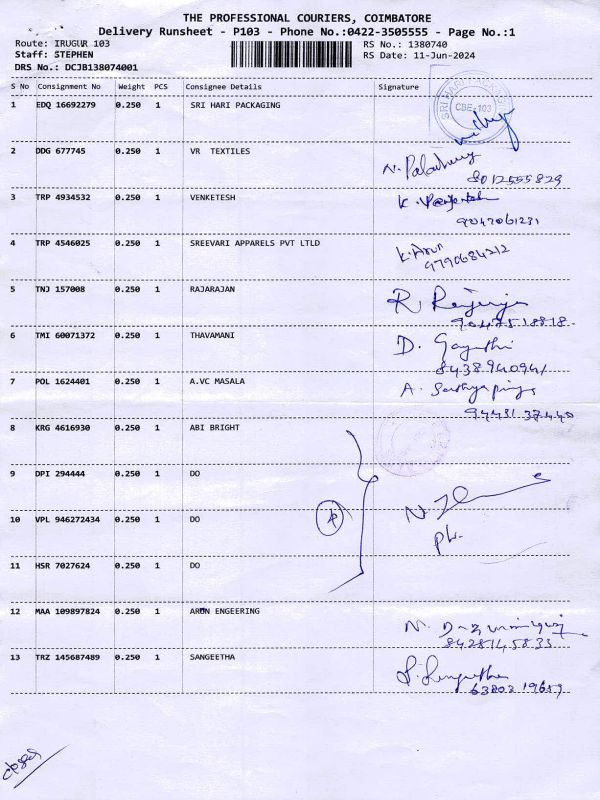 THE PROFESSIONAL COURIERS, COIMBATORE
Delivery Runsheet - P103 - Phone No.:0422-3505555 - Page No.:1
Route: IRUGUR 103 RS No.: 1380740
Staff: STEPHEN RS Date: 11-Jun-2024
DRS No.: DCJB138074001
S No Consignment No Weight PCS Consignee Details Signature
1 EDQ 16692279 0.250 1 SRI HARI PACKAGING
CBE-103
2 DDG 677745 0.250 1 VR TEXTILES
8012555829
3 TRP 4934532 0.250 1 VENKETESH K.
9047061231
4 TRP 4546025 0.250 1 SREEVARI APPARELS PVT LTLD K. Arun
9790684212
5 TNJ 157008 0.250 1 RAJARAJAN R.
9047518818
6 TMI 60071372 0.250 1 THAVAMANI D. Gayathri
8438940941
7 POL 1624401 0.250 1 A.VC MASALA A.
9443137440
8 KRG 4616930 0.250 1 ABI BRIGHT
9 DPI 294444 0.250 1 DO
10 VPL 946272434 0.250 1 DO
11 HSR 7027624 0.250 1 DO
12 MAA 109897824 0.250 1 ARUN ENGEERING M.
8428145833
13 TRZ 145687489 0.250 1 SANGEETHA
63803 19659